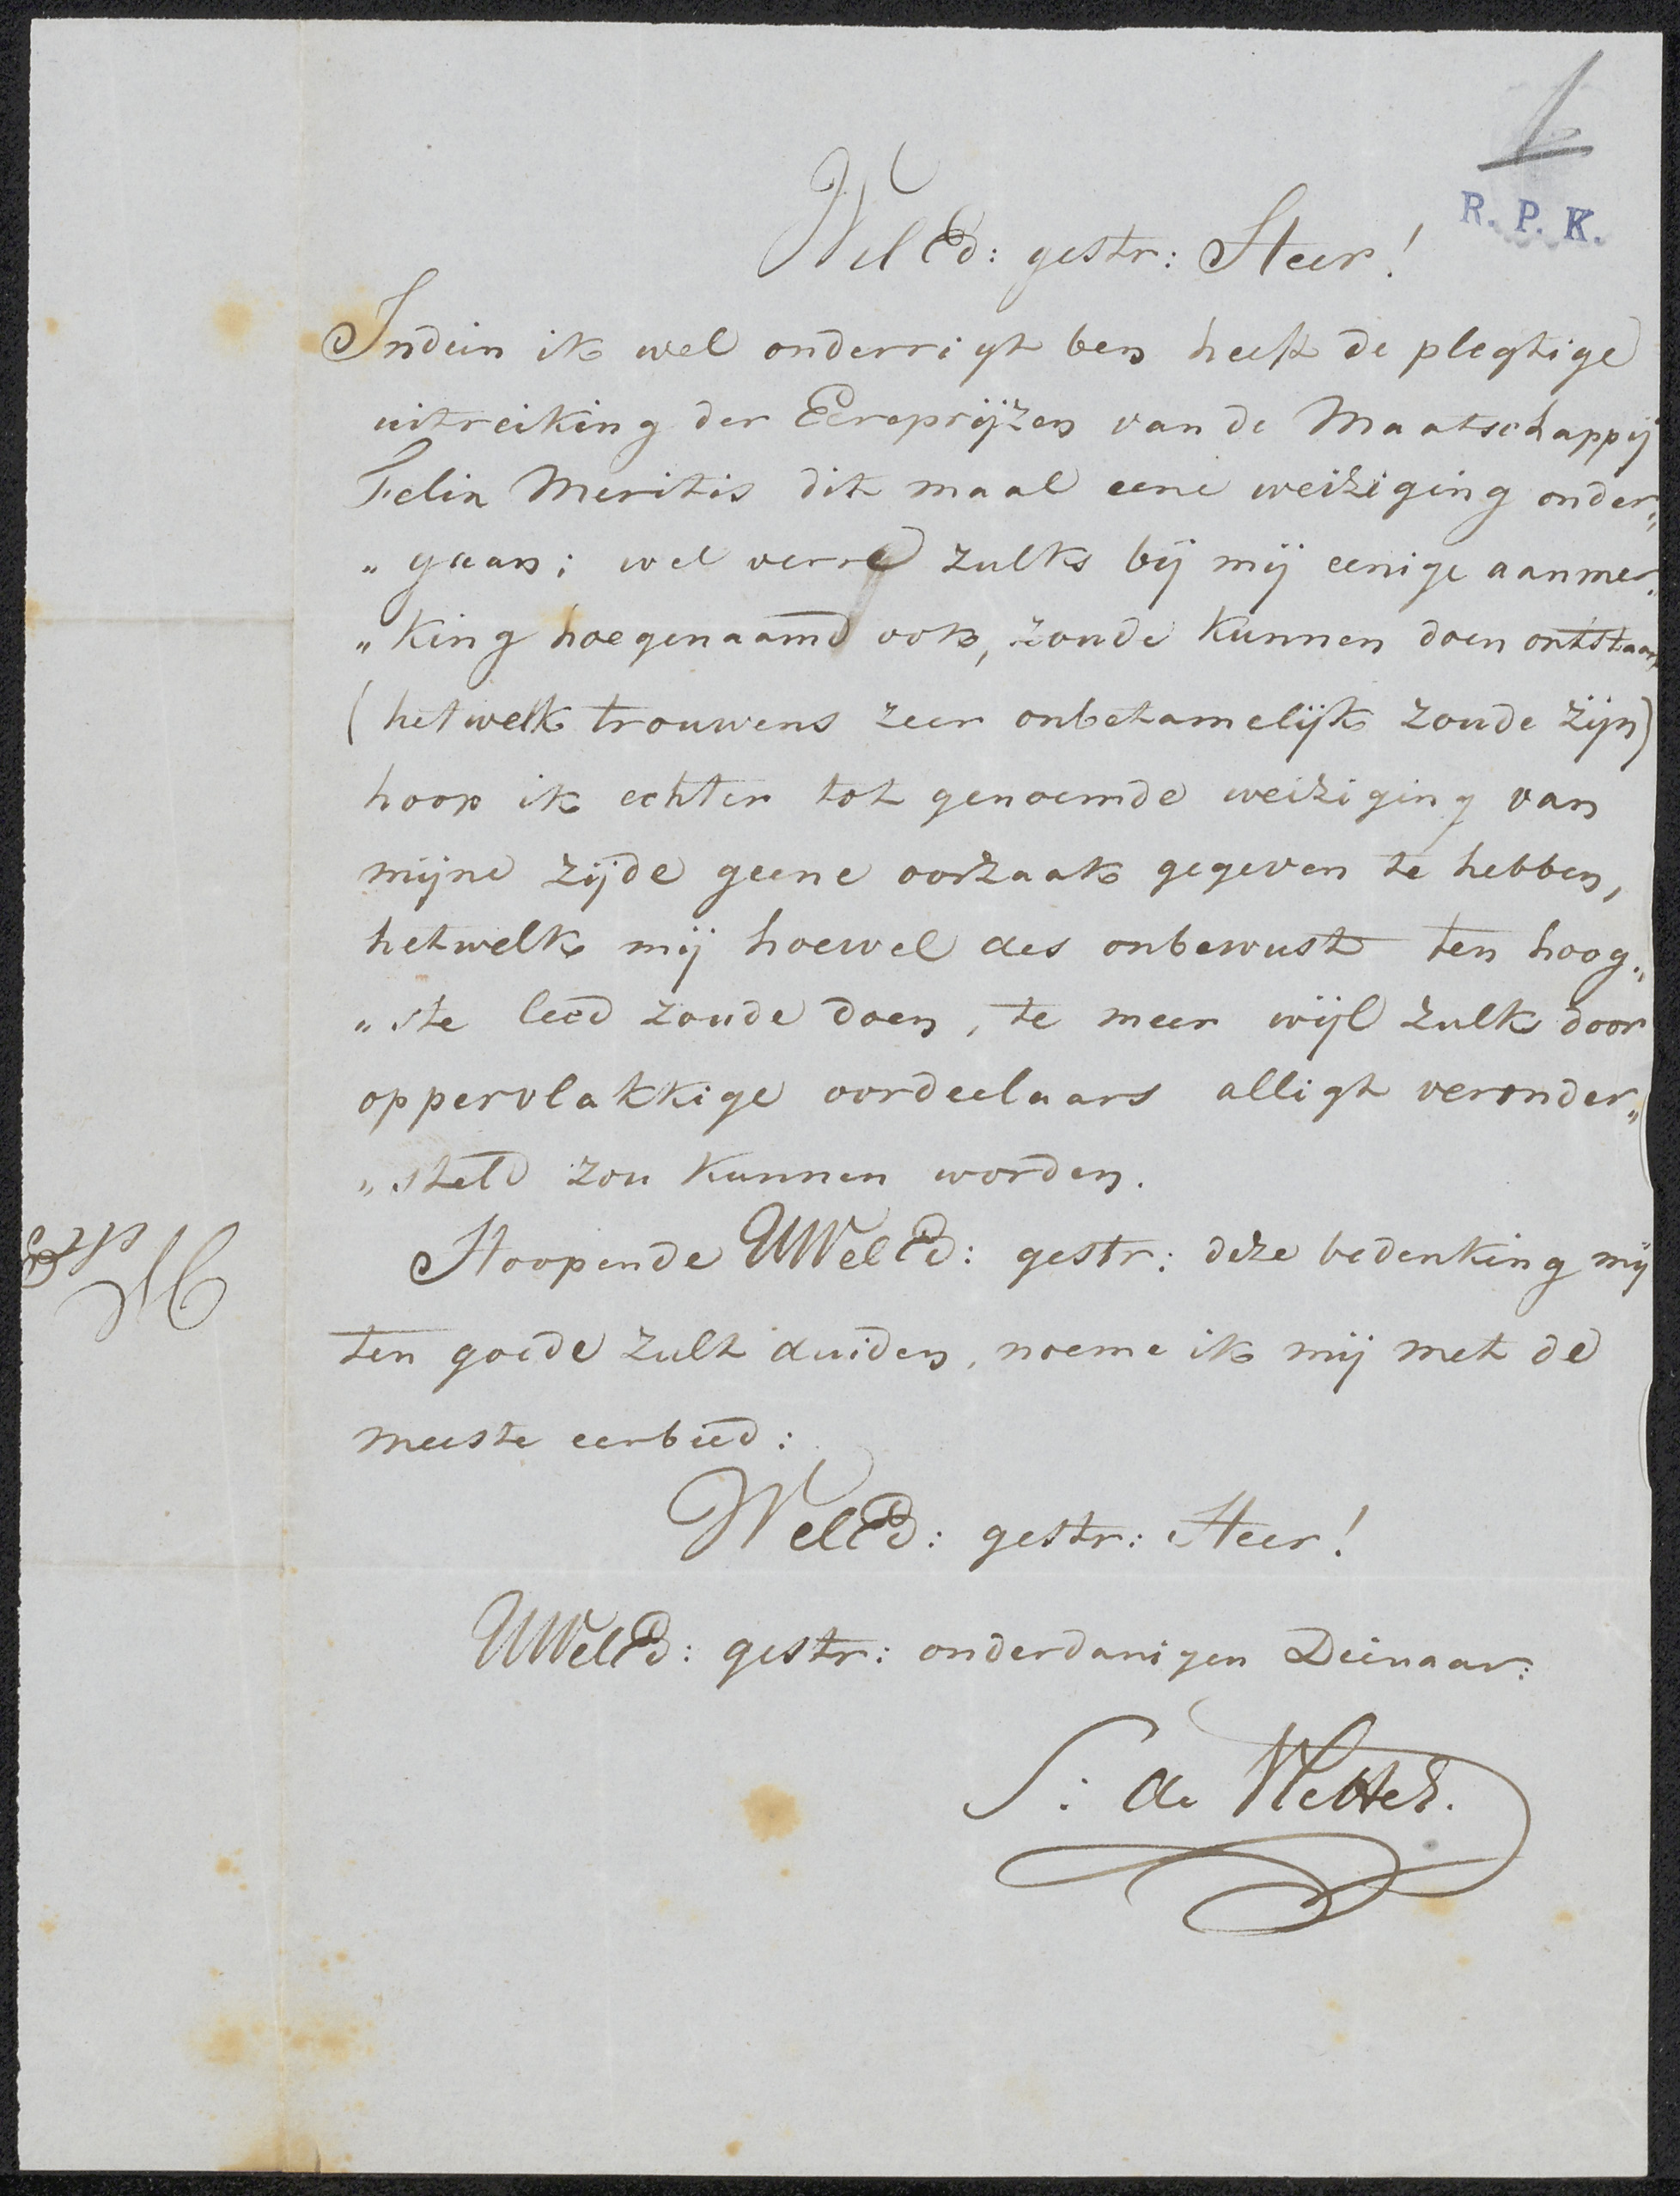 1
R. P. K.
WelEd: gestr: Heer!
Indien ik wel onderrigt ben heeft de plegtige
uitreiking der Eereprijzen van de Maatschappij
Felix Meritis dit maal eene weiziging onder„
„gaan; wel verre zulks bij mij eenige aanmer„
„king hoegenaamd ook, zoude kunnen doen ontstaan
(hetwelk trouwens zeer onbetamelijk zoude zijn)
hoop ik echter tot genoemde weiziging van
mijne zijde geene oorzaak gegeven te hebben,
hetwelk mij hoewel des onbewust ten hoog„
„ste leed zoude doen, te meer wijl zulks door
oppervlakkige oordeelaars alligt veronder„
„steld zou kunnen worden.
Hoopende UWelEd: gestr: deze bedenking mij
ten goede zult duiden, noeme ik mij met de
meeste eerbied:
WelEd: gestr: Heer!
UWelEd: gestr: onderdanigen Dienaar:
S: de